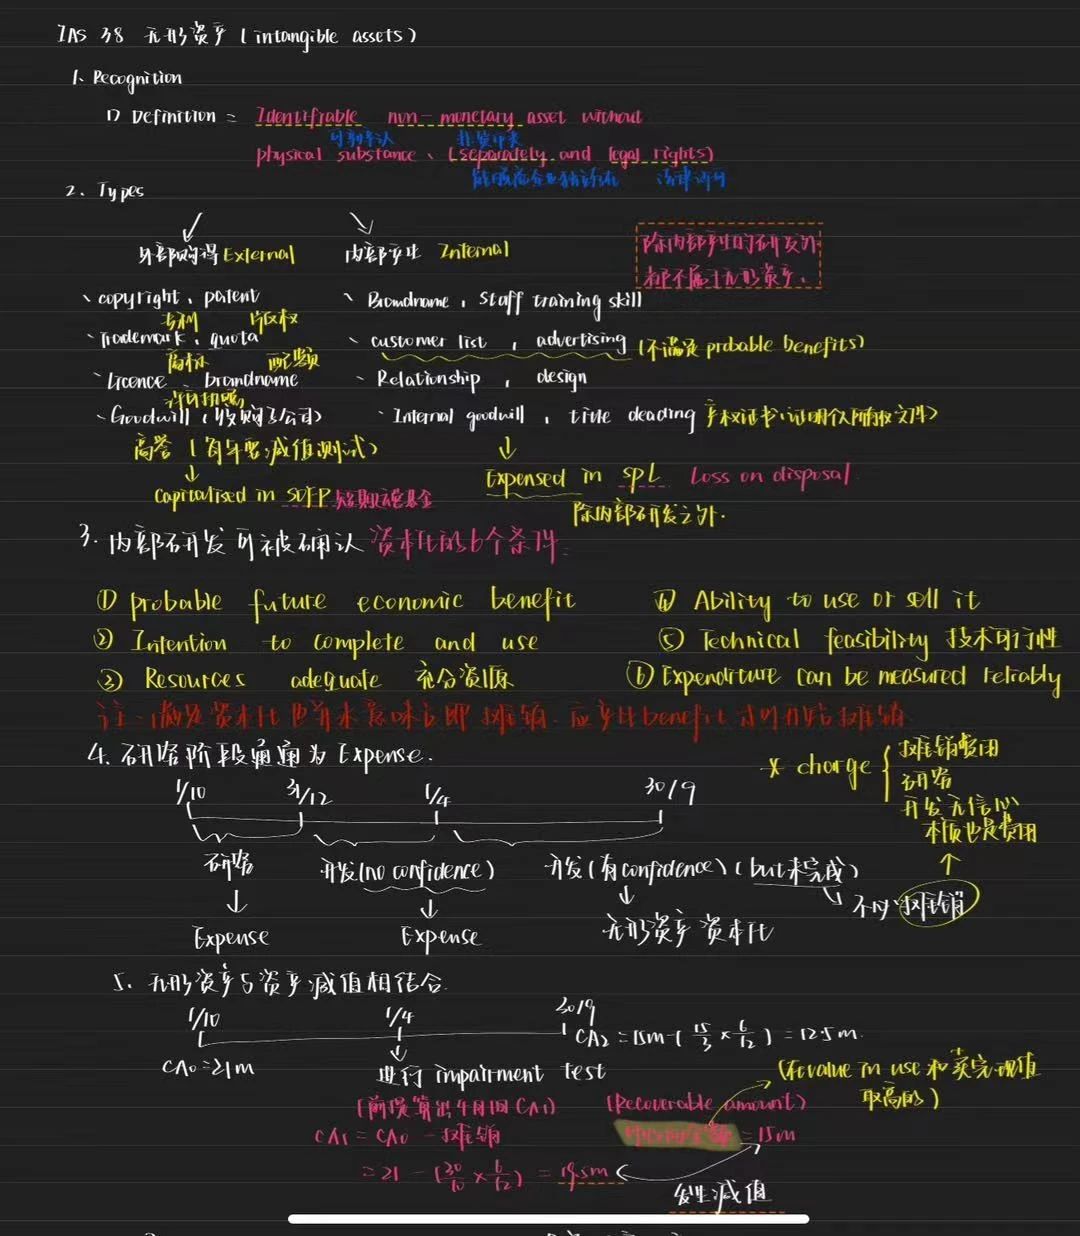 IAS 38 无形资产 (intangible assets)
1. Recognition
1) Definition = Identifiable non-monetary asset without
可辨认 非货币
physical substance、(separately and legal rights)
能脱离企业独立存在 法律许可
2. Types
外部购得 External 内部产生 Internal
除内部产生的研发外
都不属于无形资产.
、copyright、patent
专利 版权
、Brandname, staff training skill
、Trademark、quota
商标 配额
、customer list, advertising (不满足 probable benefits)
、licence、brandname
许可执照
、Relationship, design
、Goodwill (收购子公司)
、Internal goodwill, title deading 产权证书(证明个人所有权文件)
商誉 (每年要减值测试)
Capitalised in SOFP
Expensed in SPL Loss on disposal.
除内部研发之外.
3. 内部研发可被确认 资本化的6个条件.
① probable future economic benefit
④ Ability to use or sell it
② Intention to complete and use
⑤ Technical feasibility 技术可行性
③ Resources adequate 充分资源
⑥ Expenditure can be measured reliably
注:满足资本化也并未意味立即摊销. 应产生benefit 时开始摊销
4. 研究阶段通通为 Expense.
* charge { 摊销费用
研究
开发无信心
本质也是费用
1/10 31/12 1/4 30/9
研究 开发(no confidence) 开发(有confidence)(but未完成)
不可以摊销
Expense Expense 无形资产资本化
5. 无形资产与资产减值相结合
1/10 1/4 30/9
CA0=21m
CA2 = 15m - ( 15/3 × 6/12 ) = 12.5m.
进行 impairment test
(在value in use 和
取高的)
(前提算出4月1日CA1) (Recoverable amount)
CA1 = CA0 - 摊销
= 15m
= 21 - ( 30/10 × 6/12 ) = 19.5m
发生减值